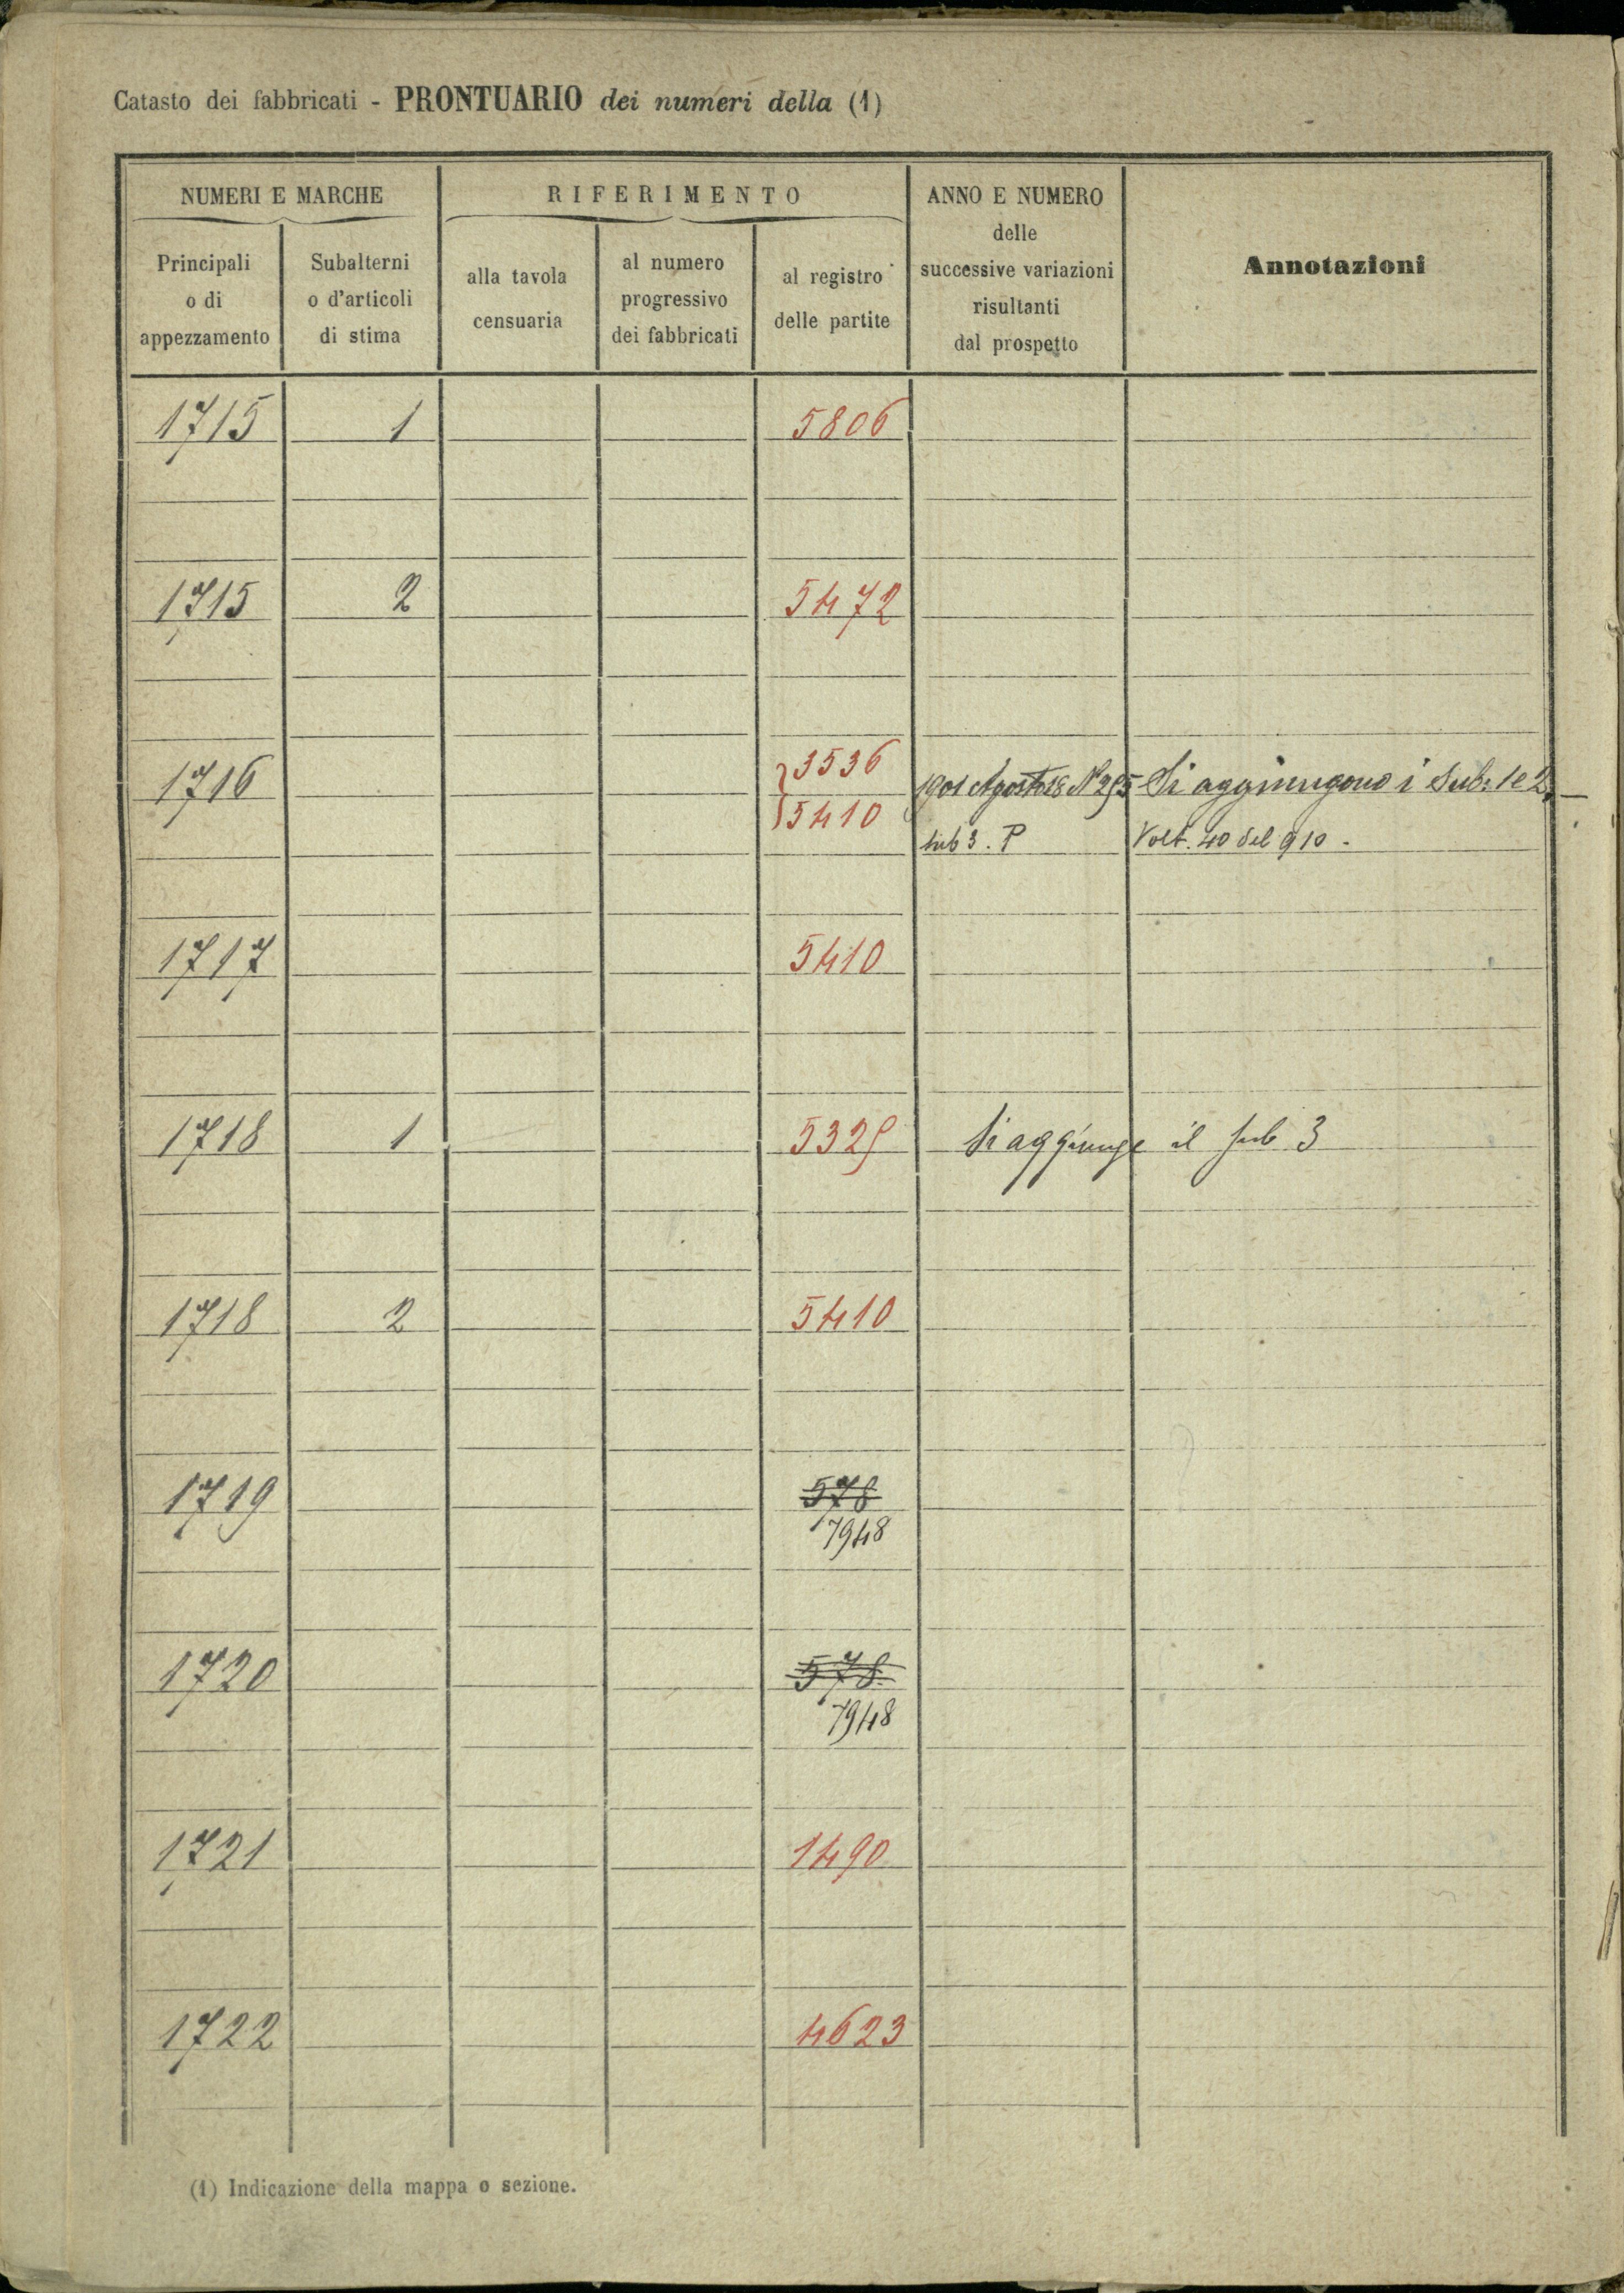 Catasto dei fabbricati - PRONTUARIO dei numeri della (1)
NUMERI E MARCHE
RIFERIMENTO
ANNO E NUMERO
delle
successive variazioni
risultanti
dal prospetto
Annotazioni
Principali
o di
appezzamento
Subalterni
o d'articoli
di stima
alla tavola
censuaria
al numero
progressivo
dei fabbricati
al registro
delle partite
1715 1 5806
1715 2 5472
1716 3536 1901 Agosto 28 N° 295 Si aggiungono i Sub: 1 e 2,
5410 sub 3. P Volt. 40 del 910.
1717 5410
1718 1 5329 Si aggiunge il sub 3
1718 2 5410
1719 578
7948
1720 578
7948
1721 1490
1722 4623
(1) Indicazione della mappa o sezione.